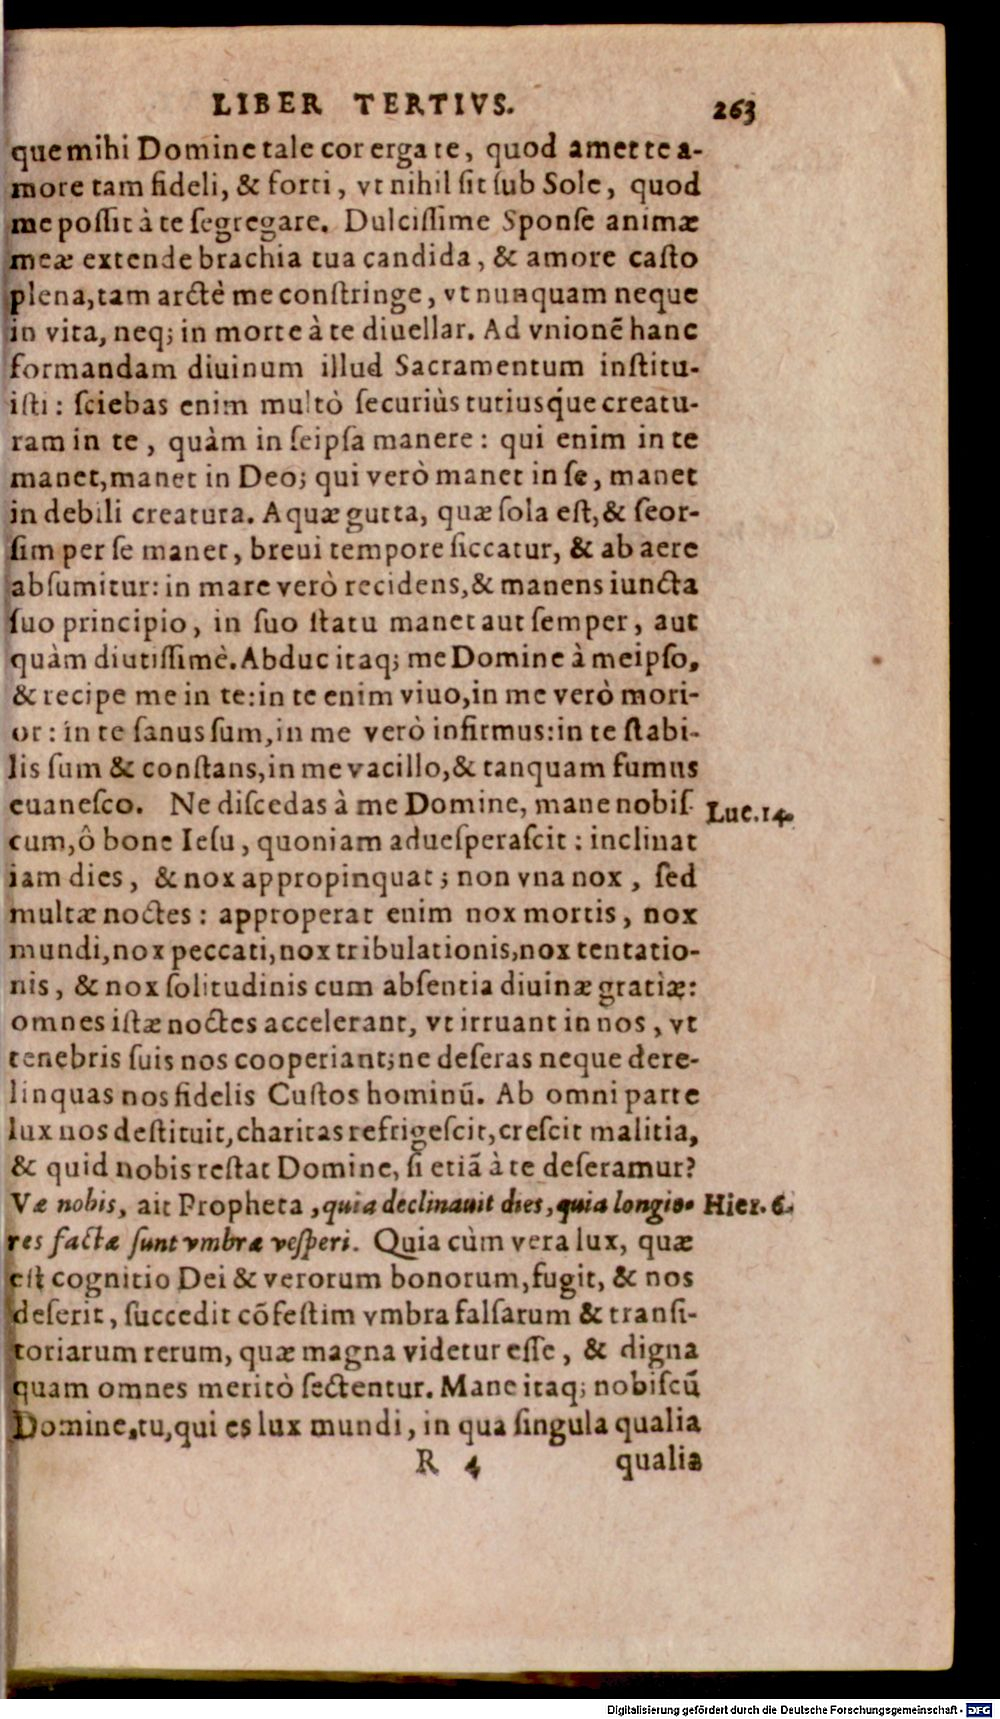 LIBER TERTIVS. 263
que mihi Domine tale cor erga te, quod amet te a-
more tam fideli, & forti, vt nihil ſit ſub Sole, quod
me poſſit à te ſegregare. Dulciſſime Sponſe animæ
meæ extende brachia tua candida, & amore caſto
plena, tam arctè me conſtringe, vt nunquam neque
in vita, neq; in morte à te diuellar. Ad vnionẽ hanc
formandam diuinum illud Sacramentum inſtitu-
iſti: ſciebas enim multò ſecuriùs tutiusq́ue creatu-
ram in te, quàm in ſeipſa manere: qui enim in te
manet, manet in Deo; qui verò manet in ſe, manet
in debili creatura. Aquæ gutta, quæ ſola eſt, & ſeor-
ſim per ſe manet, breui tempore ſiccatur, & ab aere
abſumitur: in mare verò recidens, & manens iuncta
ſuo principio, in ſuo ſtatu manet aut ſemper, aut
quàm diutiſſimè. Abduc itaq; me Domine à meipſo,
& recipe me in te: in te enim viuo, in me verò mori-
or: in te ſanus ſum, in me verò infirmus: in te ſtabi-
lis ſum & conſtans, in me vacillo, & tanquam fumus
euaneſco. Ne diſcedas à me Domine, mane nobiſ- Luc. 14.
cum, ô bone Ieſu, quoniam adueſperaſcit: inclinat
iam dies, & nox appropinquat; non vna nox, ſed
multæ noctes: approperat enim nox mortis, nox
mundi, nox peccati, nox tribulationis, nox tentatio-
nis, & nox ſolitudinis cum abſentia diuinæ gratiæ:
omnes iſtæ noctes accelerant, vt irruant in nos, vt
tenebris ſuis nos cooperiant; ne deſeras neque dere-
linquas nos fidelis Cuſtos hominũ. Ab omni parte
lux nos deſtituit, charitas refrigeſcit, creſcit malitia,
& quid nobis reſtat Domine, ſi etiã à te deſeramur?
Væ nobis, ait Propheta, quia declinauit dies, quia longio- Hier. 6.
res factæ ſunt vmbræ veſperi. Quia cùm vera lux, quæ
eſt cognitio Dei & verorum bonorum, fugit, & nos
deſerit, ſuccedit cõfeſtim vmbra falſarum & tranſi-
toriarum rerum, quæ magna videtur eſſe, & digna
quam omnes meritò ſectentur. Mane itaq; nobiſcũ
Domine, tu, qui es lux mundi, in qua ſingula qualia
R 4 qualia
Digitalisierung gefördert durch die Deutsche Forschungsgemeinschaft - DFG